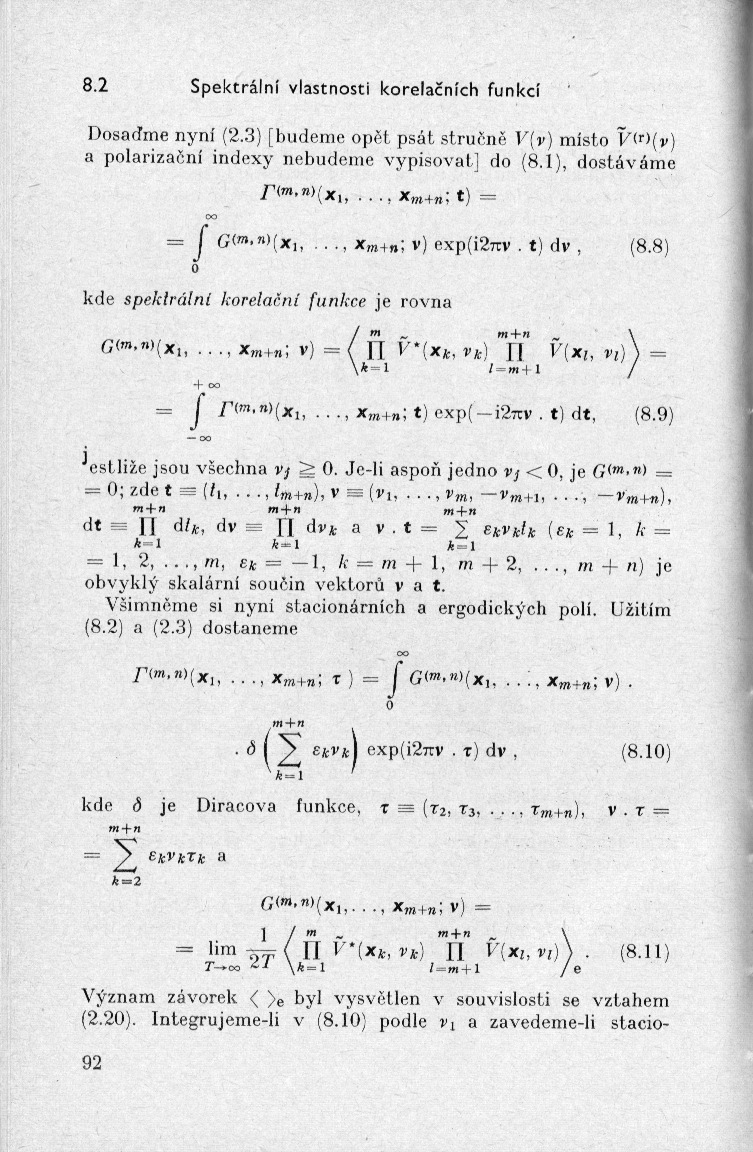 8.2 Spektrální vlastnosti korelačních funkcí
Dosaďme nyní (2.3) [budeme opět psát stručně V(ν) místo Ṽ⁽ʳ⁾(ν)
a polarizační indexy nebudeme vypisovat] do (8.1), dostáváme
Γ(m, n)(x₁, . . ., xₘ₊ₙ; t) =
= ∫₀^∞ G(m, n)(x₁, . . ., xₘ₊ₙ; ν) exp(i2πν . t) dν , (8.8)
kde spektrální korelační funkce je rovna
G(m, n)(x₁, . . ., xₘ₊ₙ; ν) = ⟨ ∏_{k=1}^{m} Ṽ*(x_k, ν_k) ∏_{l=m+1}^{m+n} Ṽ(x_l, ν_l) ⟩ =
= ∫_{−∞}^{+∞} Γ(m, n)(x₁, . . ., xₘ₊ₙ; t) exp(−i2πν . t) dt, (8.9)
jestliže jsou všechna ν_j ≧ 0. Je-li aspoň jedno ν_j < 0, je G(m, n) =
= 0; zde t ≡ (t₁, . . ., tₘ₊ₙ), ν ≡ (ν₁, . . ., νₘ, −νₘ₊₁, . . ., −νₘ₊ₙ),
dt ≡ ∏_{k=1}^{m+n} dt_k, dν ≡ ∏_{k=1}^{m+n} dν_k a ν . t = ∑_{k=1}^{m+n} ε_kν_kt_k (ε_k = 1, k =
= 1, 2, . . ., m, ε_k = −1, k = m + 1, m + 2, . . ., m + n) je
obvyklý skalární součin vektorů ν a t.
Všimněme si nyní stacionárních a ergodických polí. Užitím
(8.2) a (2.3) dostaneme
Γ(m, n)(x₁, . . ., xₘ₊ₙ; τ ) = ∫₀^∞ G(m, n)(x₁, . . ., xₘ₊ₙ; ν) .
. δ ( ∑_{k=1}^{m+n} ε_kν_k ) exp(i2πν . τ) dν , (8.10)
kde δ je Diracova funkce, τ ≡ (τ₂, τ₃, . . ., τₘ₊ₙ), ν . τ =
= ∑_{k=2}^{m+n} ε_kν_kτ_k a
G(m, n)(x₁,. . ., xₘ₊ₙ; ν) =
= lim_{T→∞} 1/2T ⟨ ∏_{k=1}^{m} Ṽ*(x_k, ν_k) ∏_{l=m+1}^{m+n} Ṽ(x_l, ν_l) ⟩_e . (8.11)
Význam závorek ⟨ ⟩_e byl vysvětlen v souvislosti se vztahem
(2.20). Integrujeme-li v (8.10) podle ν₁ a zavedeme-li stacio-
92